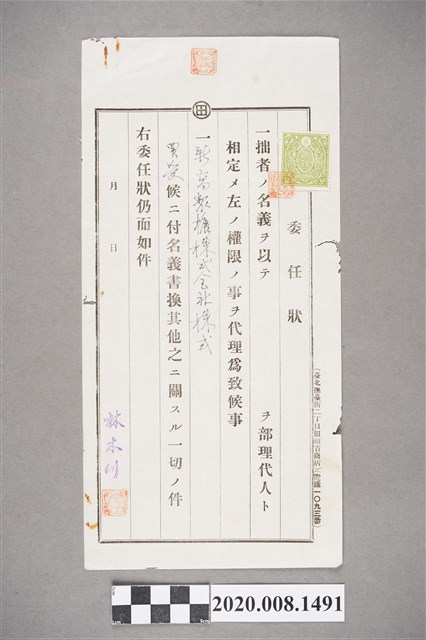 田
委任狀
一拙者ノ名義ヲ以テ
ヲ部理代人ト
相定メ左ノ權限ノ事ヲ代理爲致候事
一新高製糖株式会社株式
買受候ニ付名義書換其他之ニ關スル一切ノ件
右委任狀仍而如件
月 日
林木川
(臺北撫臺街二丁目 商店 電話一〇九三番)
2020.008.1491